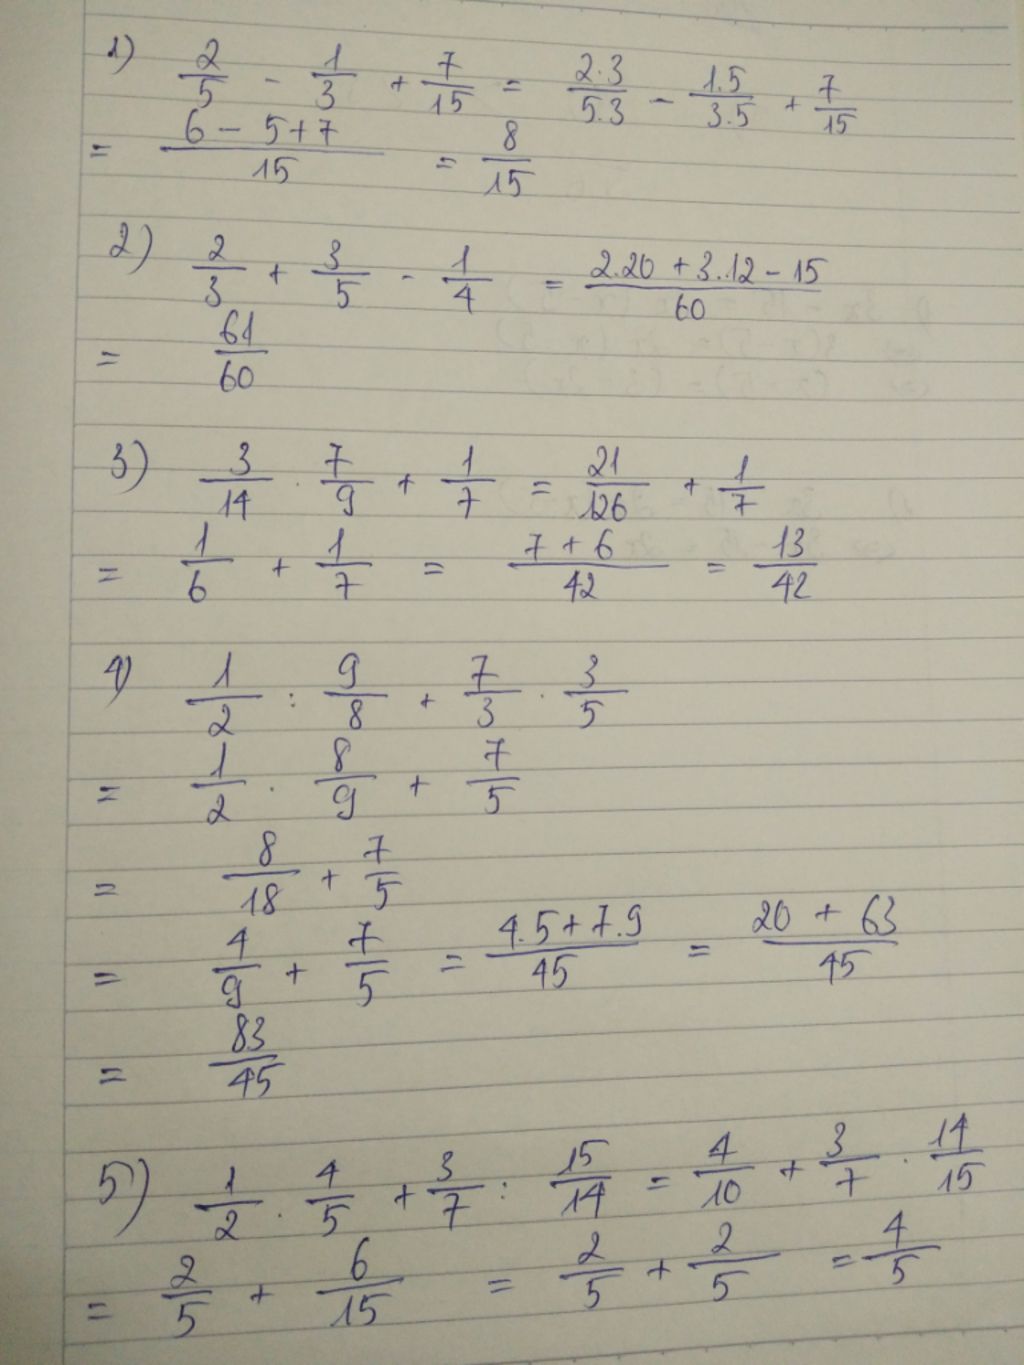 1) 2/5 - 1/3 + 7/15 = 2.3/5.3 - 1.5/3.5 + 7/15
= (6 - 5 + 7)/15 = 8/15
2) 2/3 + 3/5 - 1/4 = (2.20 + 3.12 - 15)/60
= 61/60
3) 3/14 . 7/9 + 1/7 = 21/126 + 1/7
= 1/6 + 1/7 = (7 + 6)/42 = 13/42
4) 1/2 : 9/8 + 7/3 . 3/5
= 1/2 . 8/9 + 7/5
= 8/18 + 7/5
= 4/9 + 7/5 = (4.5 + 7.9)/45 = (20 + 63)/45
= 83/45
5) 1/2 . 4/5 + 3/7 : 15/14 = 4/10 + 3/7 . 14/15
= 2/5 + 6/15 = 2/5 + 2/5 = 4/5